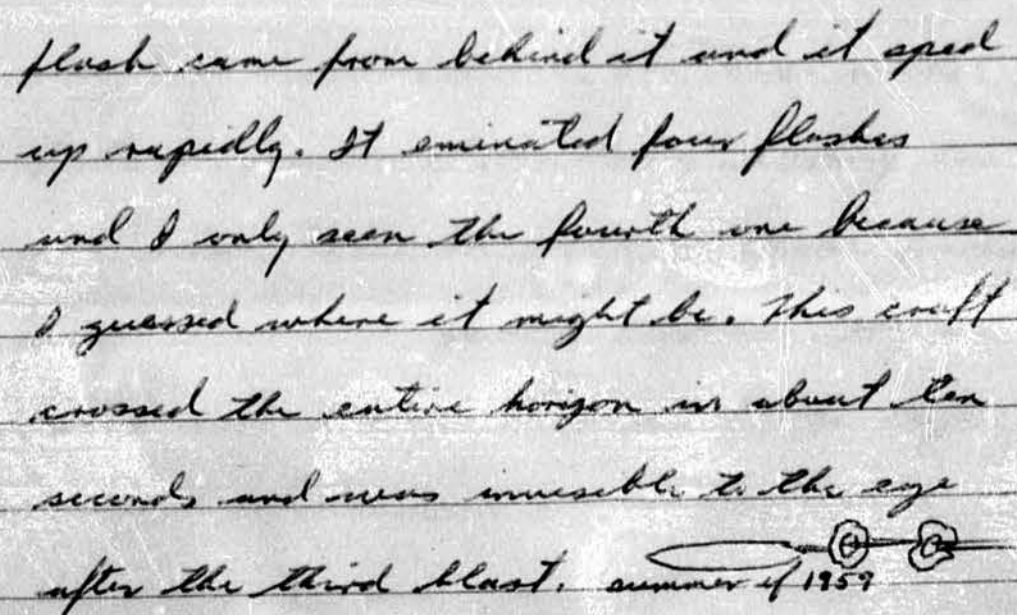 flash came from behind it and it sped
up rapidly. It eminated four flashes
and I only seen the fourth one because
I guessed where it might be. This craft
crossed the entire horizon in about ten
seconds and was invisible to the eye
after the third blast. summer of 1959